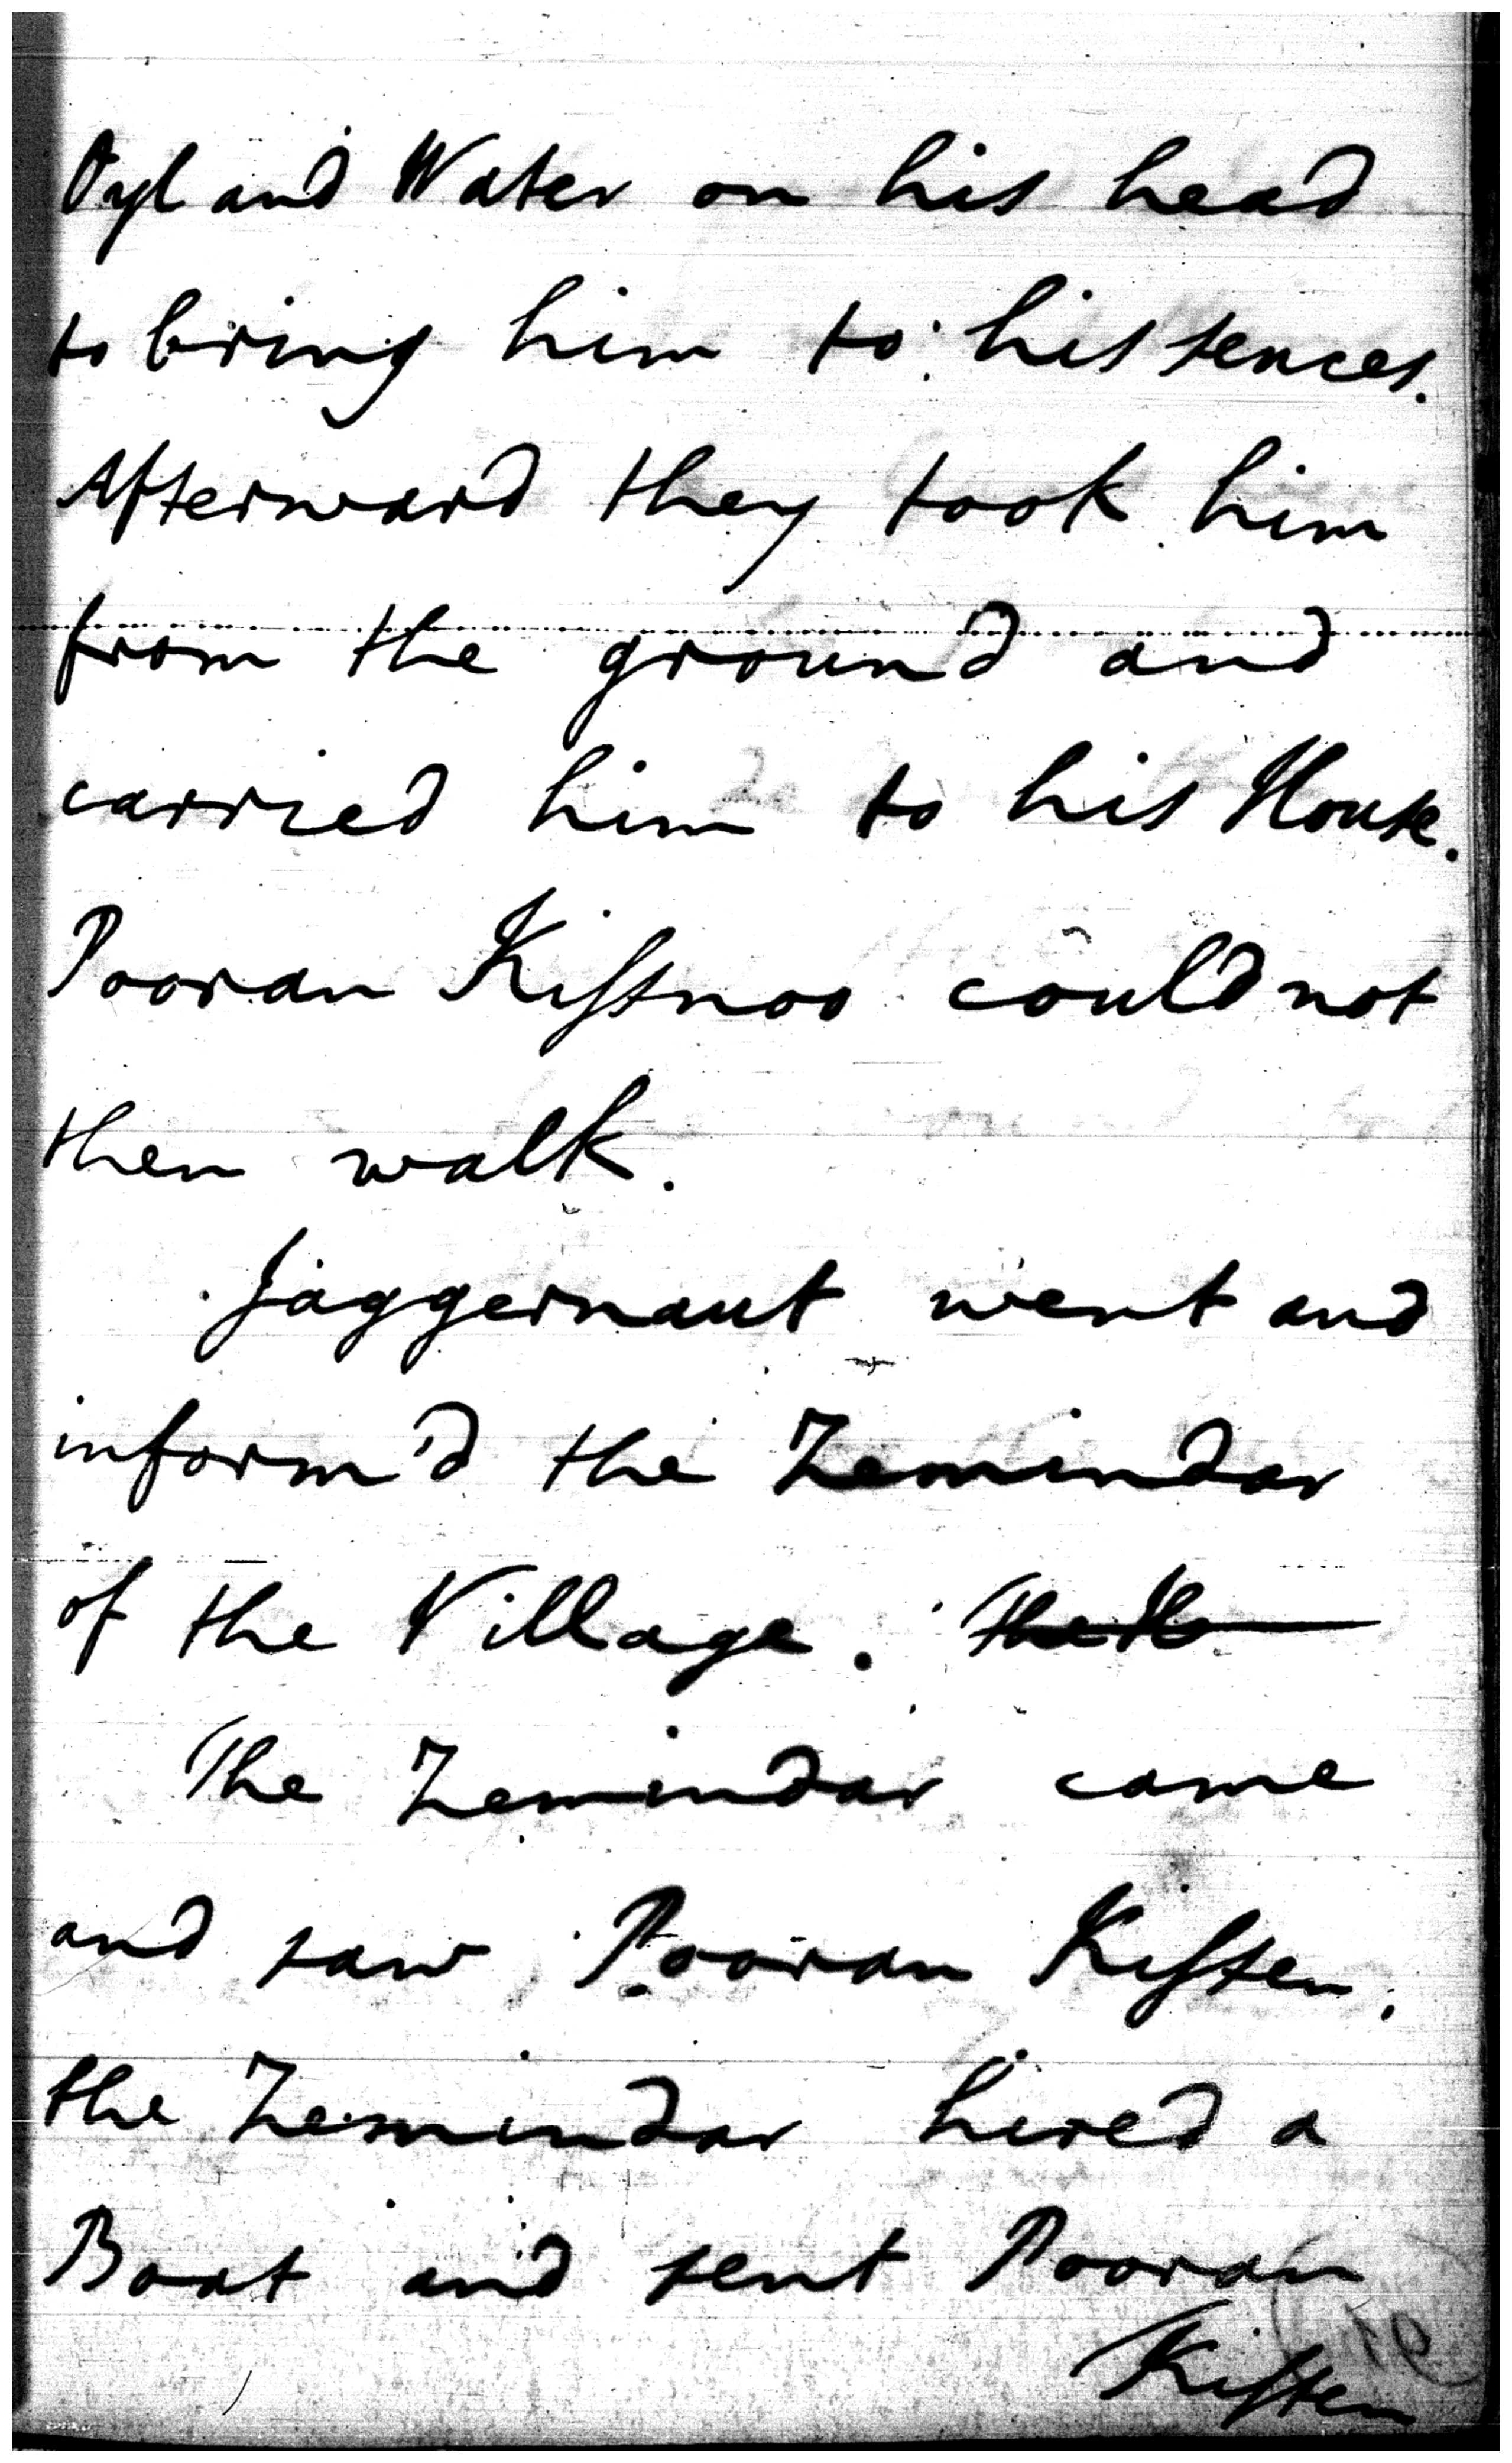 Oyl and Water on his head
to bring him to his sences.
Afterward they took him
from the ground and
carried him to his House.
Pooran Kissnoo could not
then walk.
Jaggernaut went and
inform'd the Zemindar
of the Village. The Ze
The Zemindar came
and saw Pooran Kissen.
the Zemindar hired a
Boat and sent Pooran
Kissen